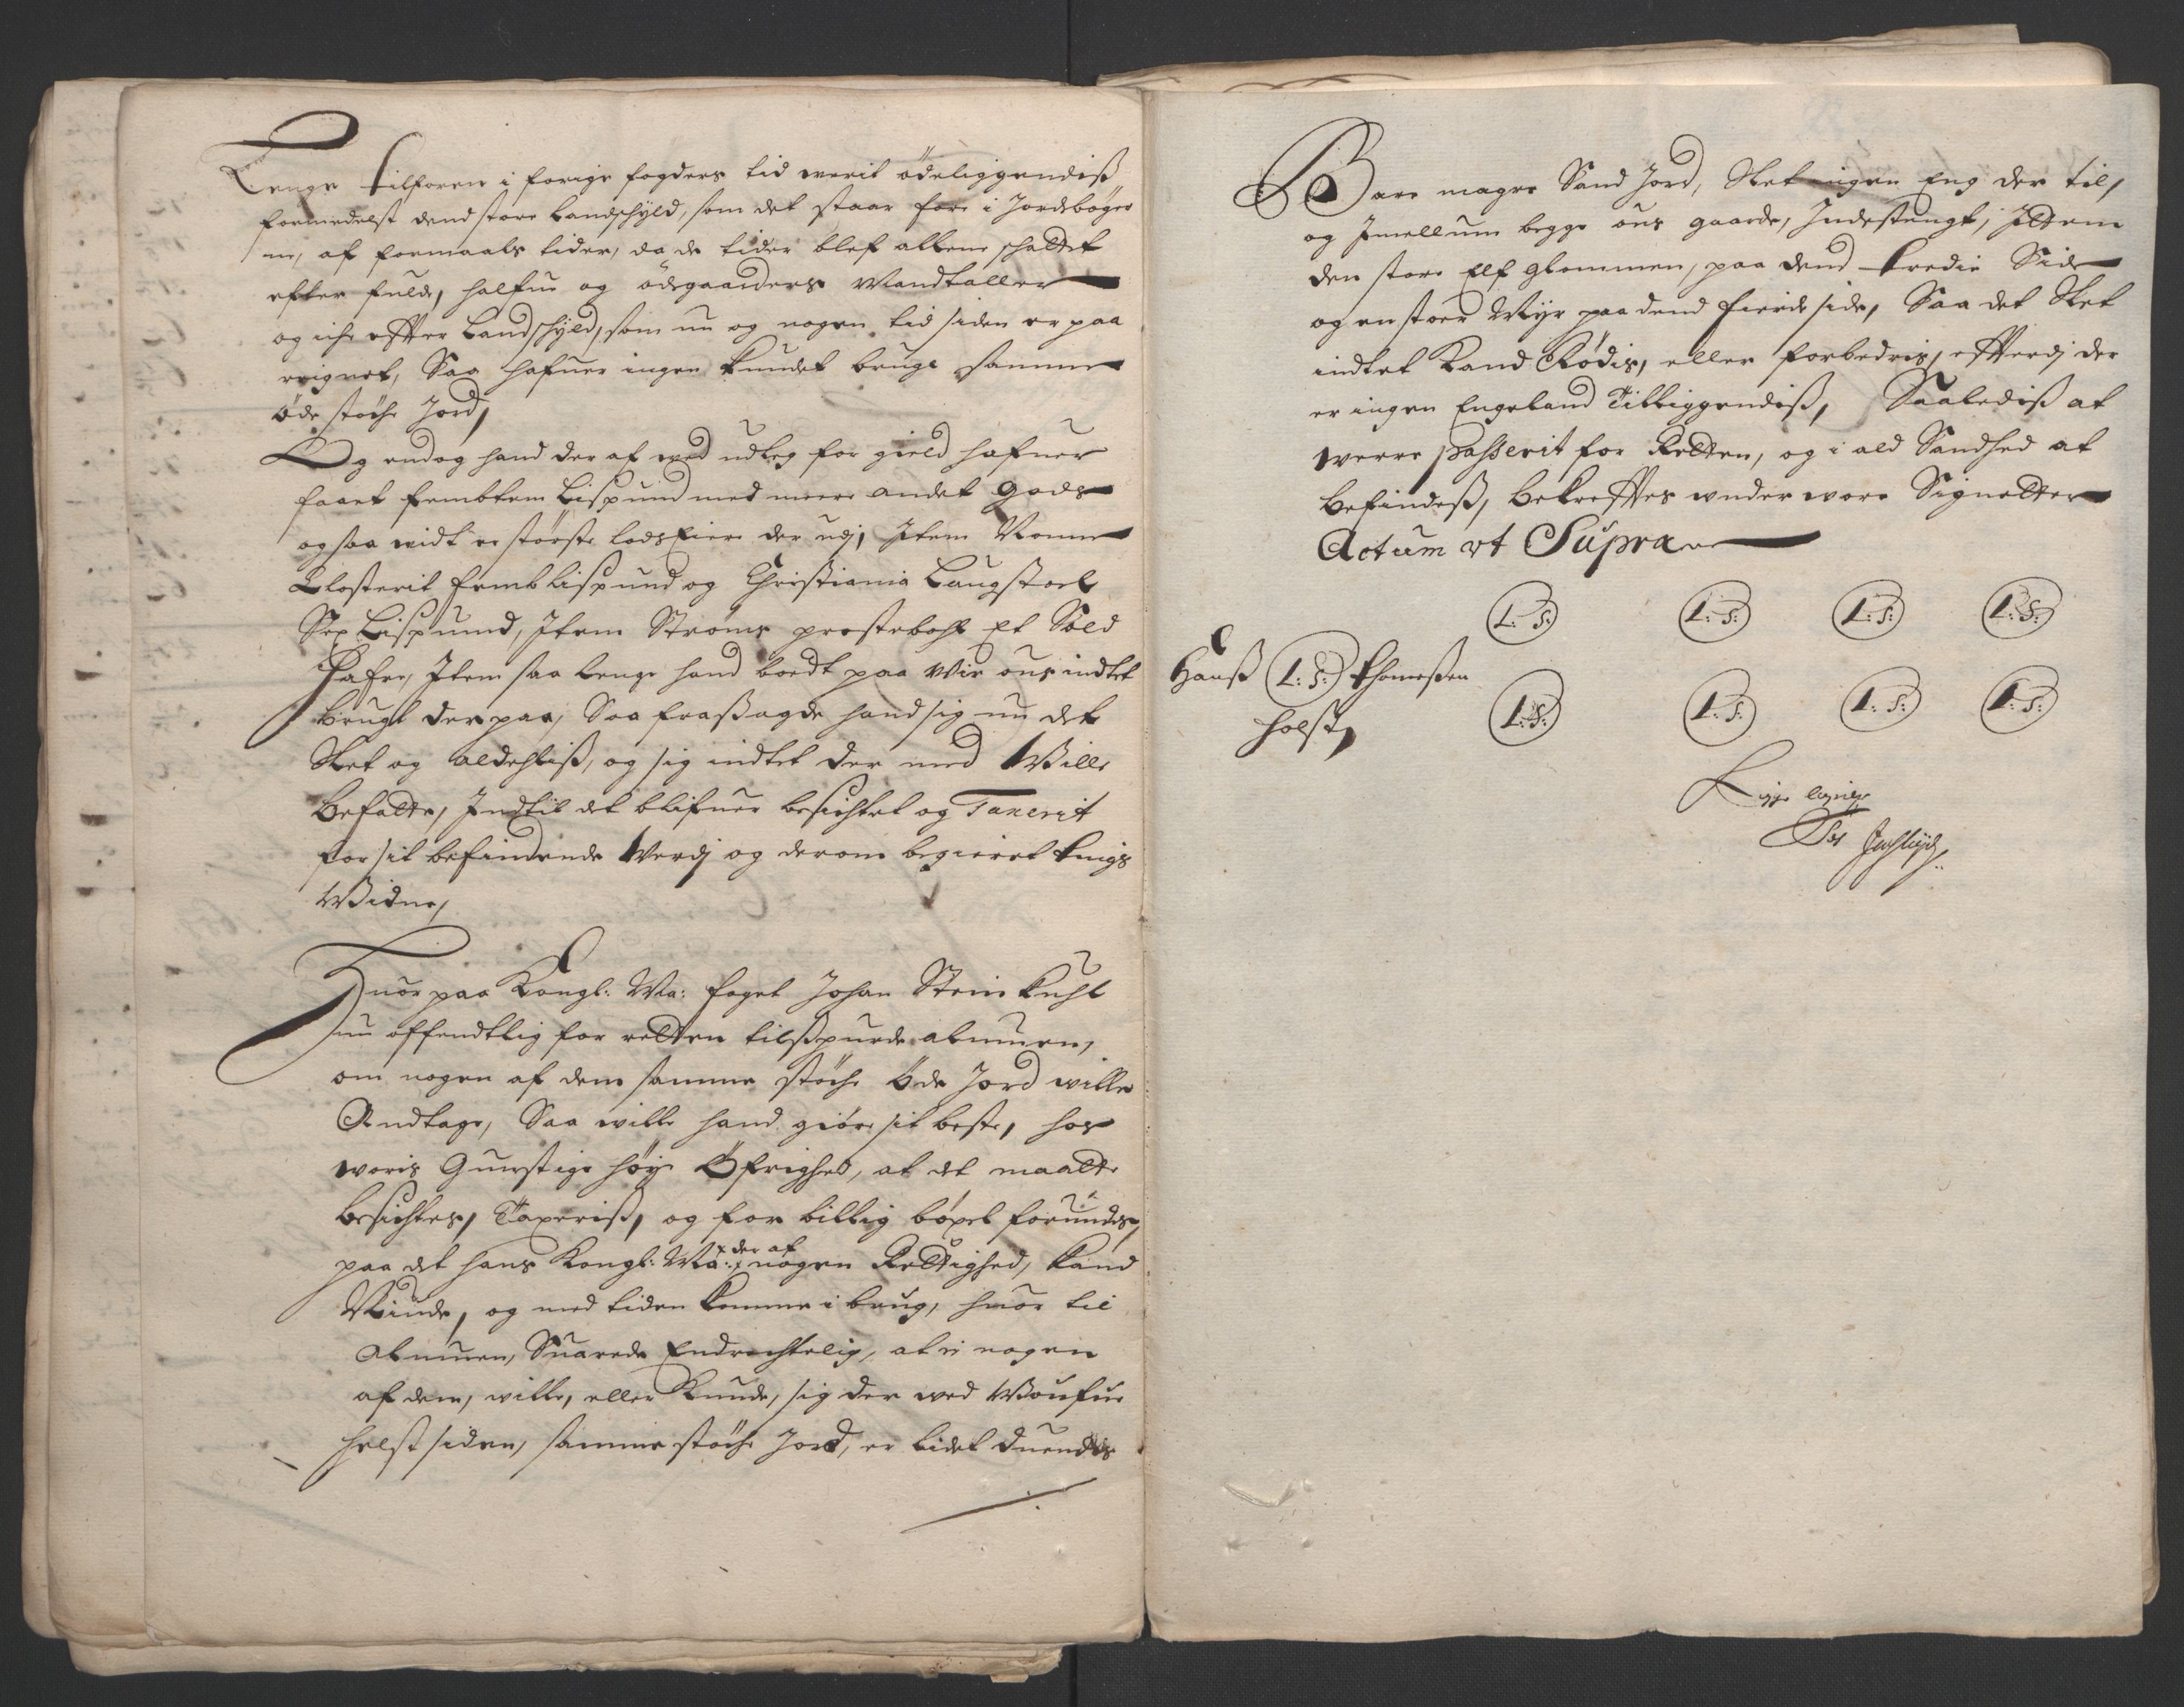 Lenge tilforen i forige fogders tid werit ödeliggendiß
formedelst dend store Landschyld, som det staar fore i Jordebøger
ne, af formaals tider, da de tider blef allene schattet
efter fulde, halfue og ödegaarders Mandtaller
og iche effter Landschyld, som nu og nogen tid siden er paa
reignet, Saa hafuer ingen kundet bruge samme
öde støche Jord,
Og endog hand der af wed udleg for gield hafuer
faaet fembten Lispund med meere andet Gods
og saa widt er støreste lodseiere der udj, Item Nonne
Closterit femb Lispund og Christiania Laugstoel
Sex Lispund, Item Strøms prestebohl Et Sold
Hafre, Item saa lenge hand boedt paa wir ous indtet
brugt der paa, Saa fraßagde hand sig nu det
Slet og aldehliß, og sig indtet der med Wille
befatte, Indtil det blifuer besichtet og Taxerit
for sit befindende Werdj og derom begieret tings
Widne,
Huor paa Kongl: Ma: foget Johan Stein Kuhl
nu offendtlig for retten tilßpurde almuen,
om nogen af dem samme støche Öde Jord wille
Andtage, Saa wille hand giøre sit beste, hos
woris Gunstige høye Öfrighed, at det maatte
besichtes, Taxeriß, og for billig bøxel forundes,
paa det hans Kongl: Ma: der af nogen Rettighed, kand
Niude, og med tiden komme i brug, huor til
Almuen, Suarede Endrechtelig, at ei nogen
af dem, wille, eller Kunde, sig der wed Woufue
helst siden, samme støche Jord, er lidet duendis
Bare mager Sand Jord, Slet ingen Eng der til,
og Imellum begge ous gaarde, Indestengt, Jtem
den store Elf Glommen, paa dend tredie Side
og en stoer Myr paa dend fierde side, Saa det Slet
indtet Kand Rødis, eller forbedris, effterdj der
er ingen Engeland Tilliggendiß, Saalediß at
werre passerit for Retten, og i ald Sandhed at
befindeß, bekreffter wnder wore Signetter
Actum vt Supra
L: S: L: S: L: S: L: S:
Hanß L: S: Thomeßen
Holst,
L: S: L: S: L: S: L: S: